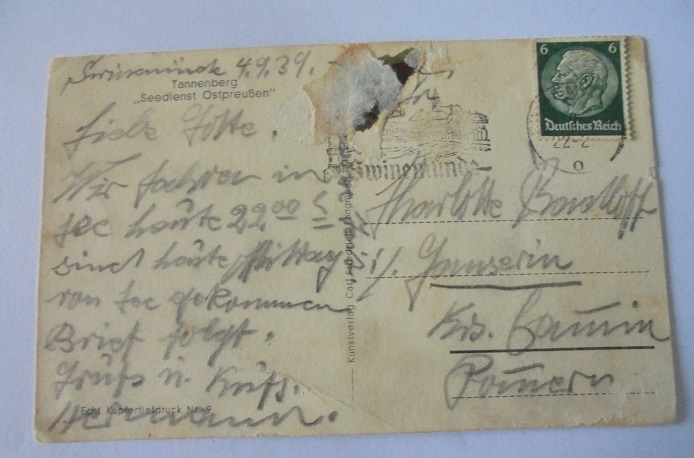 Swinemünde 4.9.39.
Tannenberg
„Seedienst Ostpreußen"
Liebe Lotte.
Wir fahren in
See heute 22 00
sind heute Mittag
von See gekommen
Brief folgt.
Gruß u. Kuß.
Hermann.
Echt Kupfertiefdruck Nr. 9
Kunstverlag Carl
6 6
Deutsches Reich
22-2
o
Swinemünde
Charlotte
i/
Krs. Cammin
Pommern